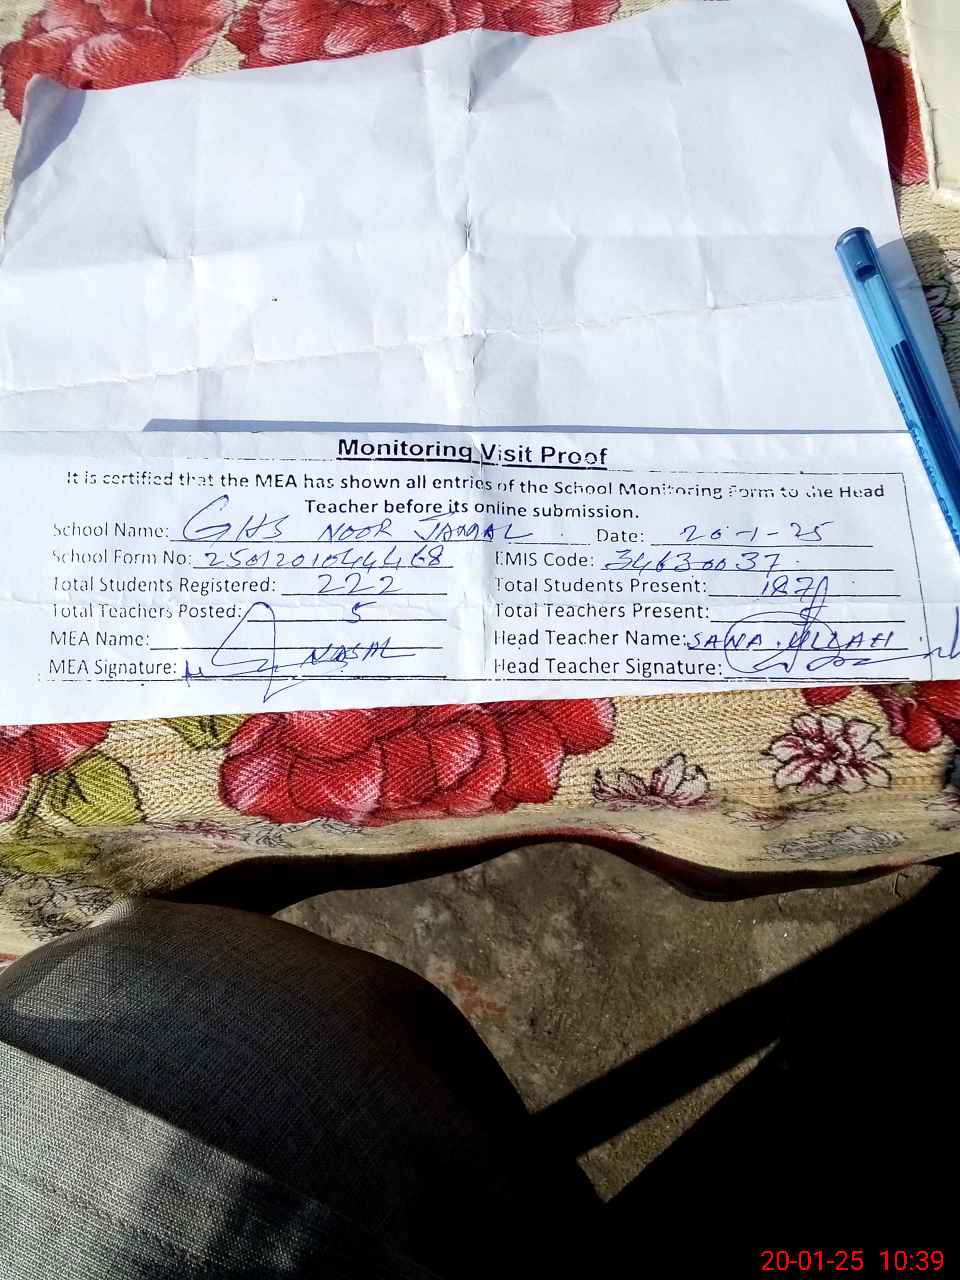 Monitoring Visit Proof
It is certified that the MEA has shown all entries of the School Monitoring Form to the Head
Teacher before its online submission.
School Name: GHS NOOR Date: 20-1-25
School Form No: EMIS Code: 34630037
Total Students Registered: 222 Total Students Present: 187
Total Teachers Posted: 5 Total Teachers Present:
MEA Name: Head Teacher Name: SANA ULLAH
MEA Signature: Head Teacher Signature:
20-01-25 10:39